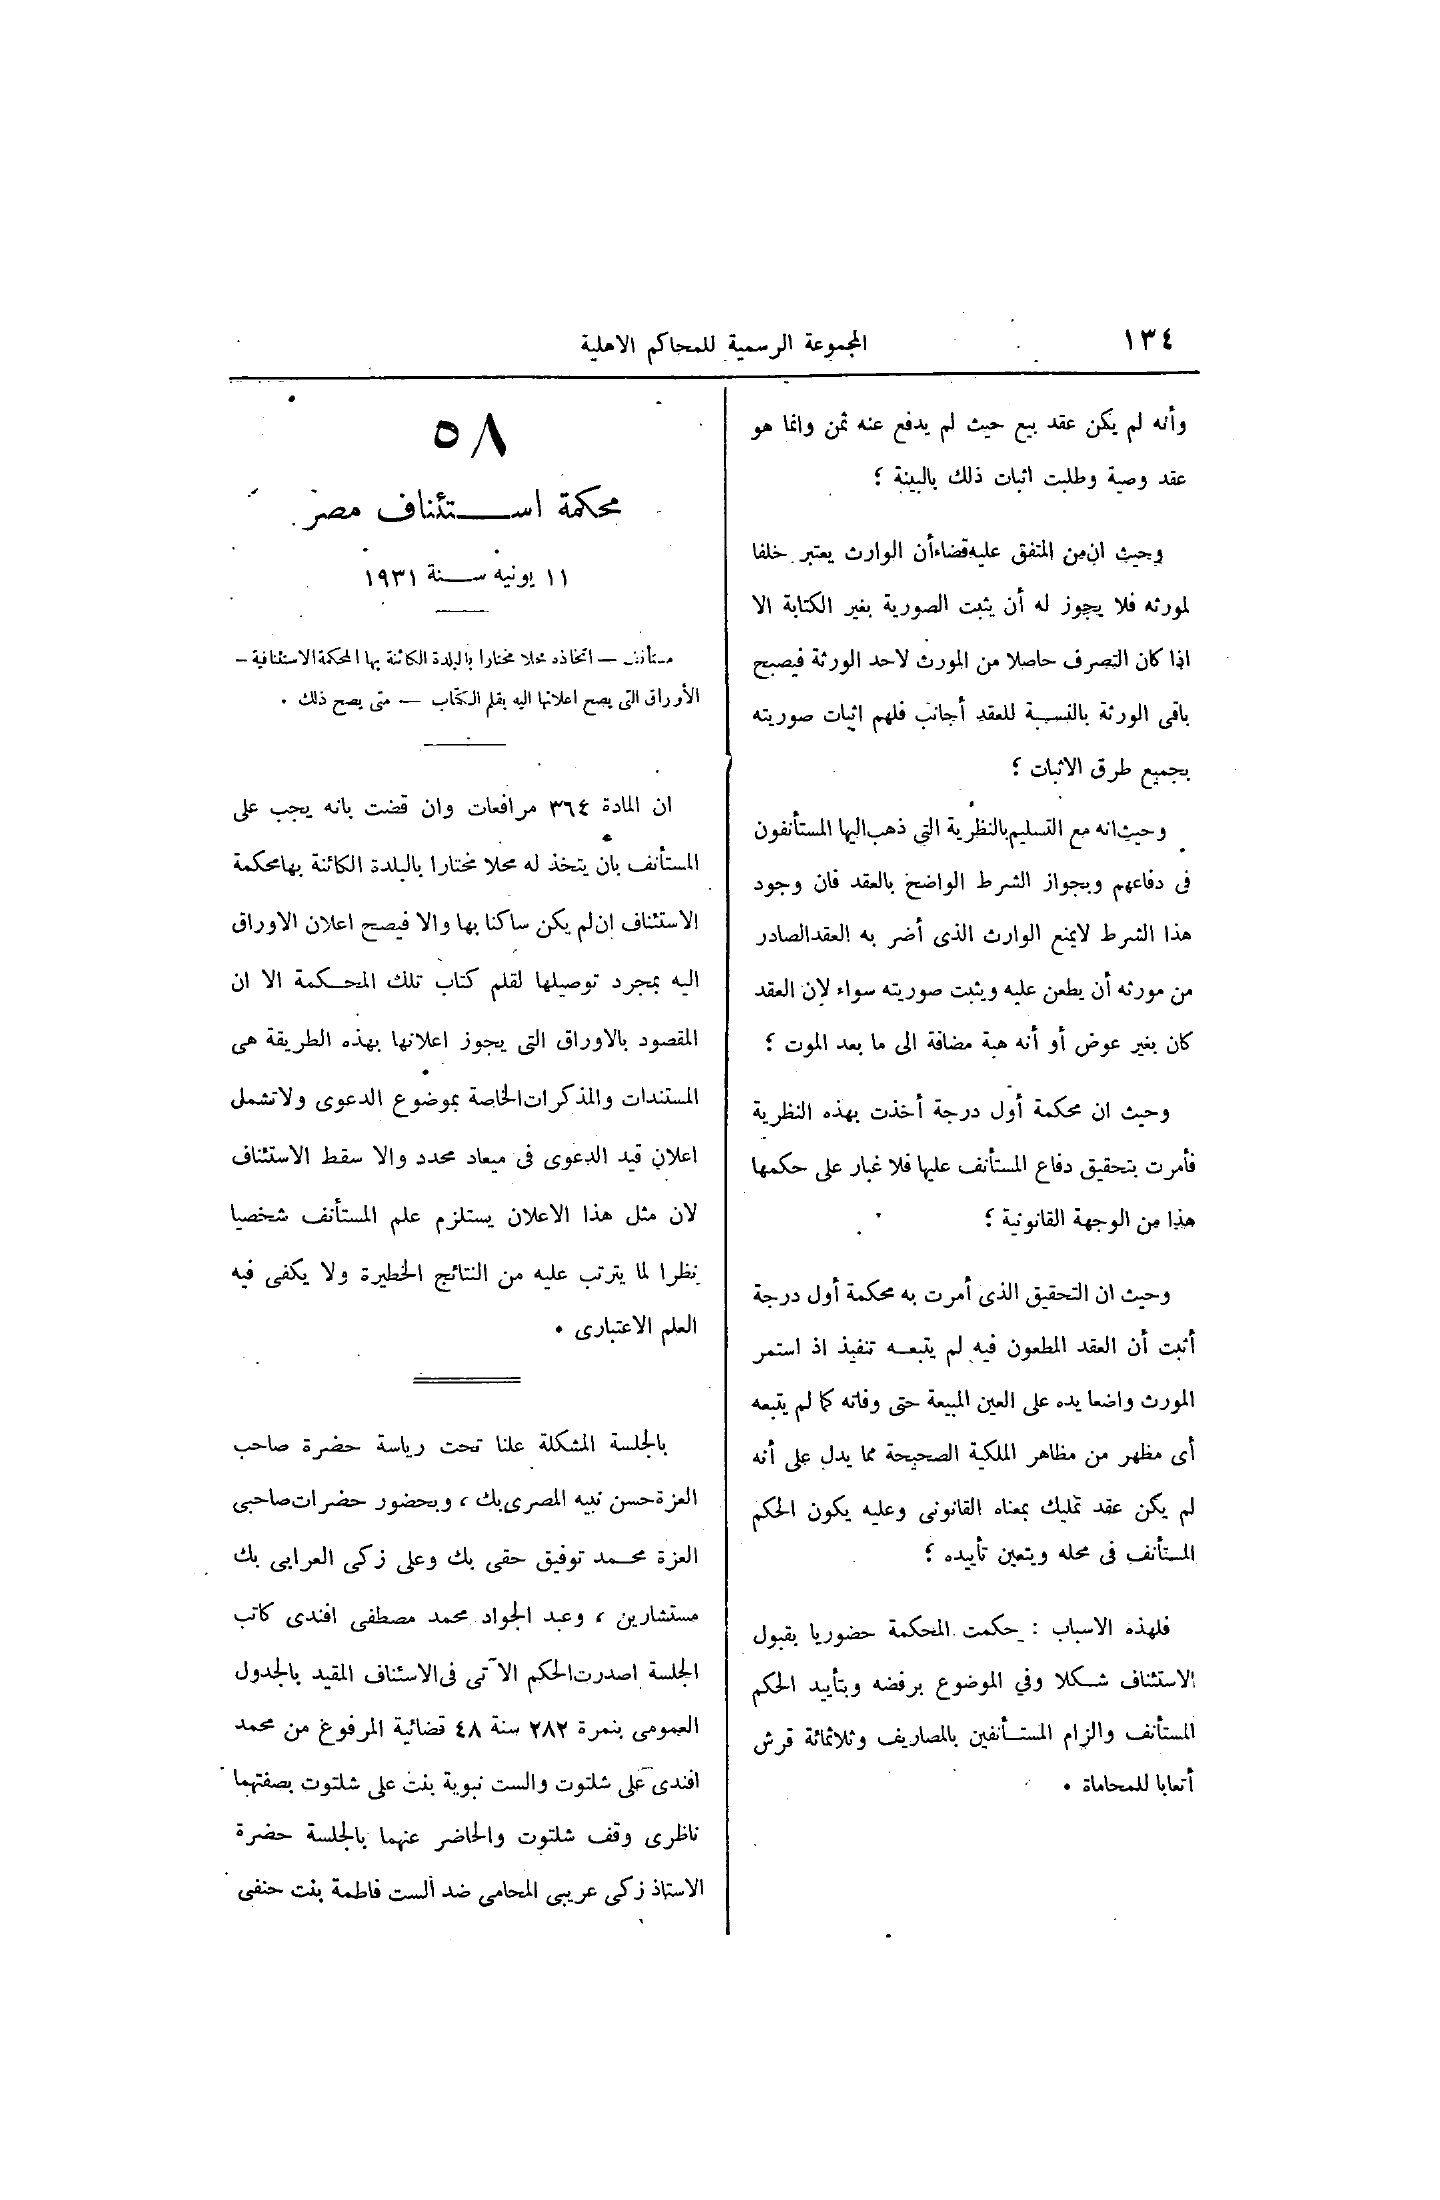 ١٣٤
المجموعة الرسمية للمحاكم الاهلية
وأنه لم يكن عقد بيع حيث لم يدفع عنه ثمن وانما هو
عقد وصية وطلبت اثبات ذلك بالبينة ؛
وحيث ان من المتفق عليه قضاء أن الوارث يعتبر خلفا
لمورثه فلا يجوز له أن يثبت الصورية بغير الكتابة الا
اذا كان التصرف حاصلا من المورث لاحد الورثة فيصبح
باقى الورثة بالنسبة للعقد أجانب فلهم اثبات صوريته
بجميع طرق الاثبات ؛
وحيث انه مع التسليم بالنظرية التى ذهب اليها المستأنفون
فى دفاعهم وبجواز الشرط الواضح بالعقد فان وجود
هذا الشرط لايمنع الوارث الذى أضر به العقد الصادر
من مورثه أن يطعن عليه ويثبت صوريته سواء لان العقد
كان بغير عوض أو أنه هبة مضافة الى ما بعد الموت ؛
وحيث ان محكمة أول درجة أخذت بهذه النظرية
فأمرت بتحقيق دفاع المستأنف عليها فلا غبار على حكمها
هذا من الوجهة القانونية ؛
وحيث ان التحقيق الذى أمرت به محكمة أول درجة
أثبت أن العقد المطعون فيه لم يتبعه تنفيذ اذ استمر
المورث واضعا يده على العين المبيعة حتى وفاته كما لم يتبعه
أى مظهر من مظاهر الملكية الصحيحة مما يدل على أنه
لم يكن عقد تمليك بمعناه القانونى وعليه يكون الحكم
المستأنف فى محله ويتعين تأييده ؛
فلهذه الاسباب : حكمت المحكمة حضوريا بقبول
الاستئناف شكلا وفي الموضوع برفضه وبتأييد الحكم
المستأنف والزام المستأنفين بالمصاريف وثلاثمائة قرش
أتعابا للمحاماة .
٥٨
محكمة استئناف مصر
١١ يونيه سنة ١٩٣١
مستأنف — اتخاذه محلا مختارا بالبلدة الكائنة بها المحكمة الاستئنافية —
الأوراق التى يصح اعلانها اليه بقلم الكتاب — متى يصح ذلك .
ان المادة ٣٦٤ مرافعات وان قضت بانه يجب على
المستأنف بان يتخذ له محلا مختارا بالبلدة الكائنة بها محكمة
الاستئناف ان لم يكن ساكنا بها والا فيصح اعلان الاوراق
اليه بمجرد توصيلها لقلم كتاب تلك المحكمة الا ان
المقصود بالاوراق التى يجوز اعلانها بهذه الطريقة هى
المستندات والمذكرات الخاصة بموضوع الدعوى ولا تشمل
اعلان قيد الدعوى فى ميعاد محدد والا سقط الاستئناف
لان مثل هذا الاعلان يستلزم علم المستأنف شخصيا
نظرا لما يترتب عليه من النتائج الخطيرة ولا يكفى فيه
العلم الاعتبارى .
بالجلسة المشكلة علنا تحت رياسة حضرة صاحب
العزة حسن نبيه المصرى بك ، وبحضور حضرات صاحبى
العزة محمد توفيق حقى بك وعلى زكى العرابى بك
مستشارين ، وعبد الجواد محمد مصطفى افندى كاتب
الجلسة اصدرت الحكم الآتى فى الاستئناف المقيد بالجدول
العمومى بنمرة ٢٨٢ سنة ٤٨ قضائية المرفوع من محمد
افندى على شلتوت والست نبوية بنت على شلتوت بصفتهما
ناظرى وقف شلتوت والحاضر عنهما بالجلسة حضرة
الاستاذ زكى عريبى المحامى ضد الست فاطمة بنت حنفى